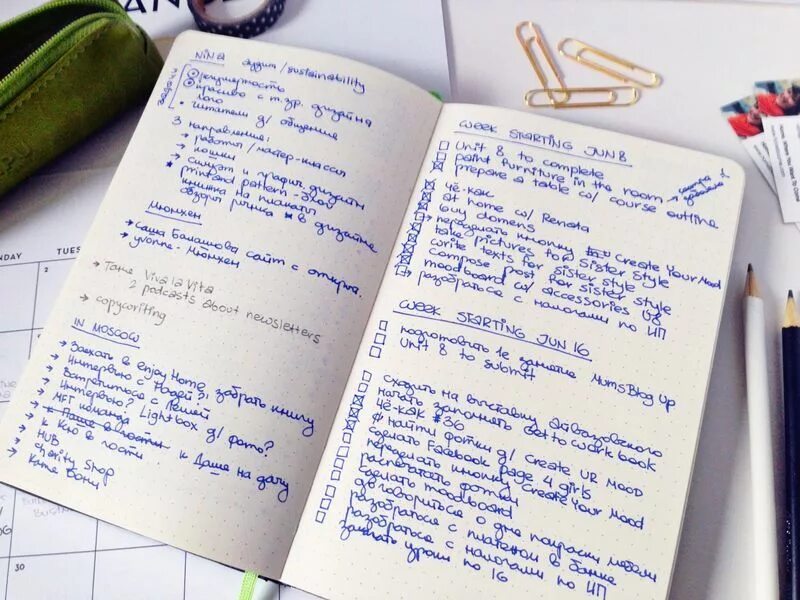 NINA аудит / sustainability
задачи
регулярность
красиво с т.зр. дизайна
лого
читатели д/ общения
3 направления:
работы / мастер-классы
кошки
синхэт и график. дизайн
print and pattern - блог
книжка на плакаты
обзоры рынка в дизайне
Мюнхен
→ Саша Балашова сайт с открыт.
→ yvonne - Мюнхен
→ Тане Viva la Vita
2 podcasts about newsletters
→ copywriting
IN MOSCOW
→ Заехать в Enjoy Home, забрать книгу
→ Интервью с Розой?!
→ Встретиться с Лёшей
→ Интервью? Lightbox д/ фото?
→ MFT команда
→ к Кю в гости к Даше на дачу
→ HUB
→ Charity Shop
→ Кате Бони
WEEK STARTING JUN 8
Unit 8 to complete
paint furniture in the room →
prepare a table w/ course outline
Чё-как
at home w/ Renata
buy domens
переделать кнопку Create Your Mood
take pictures for Sister Style
write texts for sister style
compose post for sister style
moodboard w/ accessories U8
разобраться с налогами по ИП
WEEK STARTING JUN 16
подготовить 1е занятие MumsBlogUp
Unit 8 to submit
сходить на выставку Айвазовского
начать заполнять Get to Work book
Чё-как #36
найти фотки д/ Create UR MOOD
сделать Facebook page 4 girls
переделать кнопку Create Your Mood
распечатать фотки
сделать moodboard
договориться о дне покраски мебели
разобраться с платежом в банке
разобраться с налогами по ИП
закачать уроки по 16
TUES
2
30